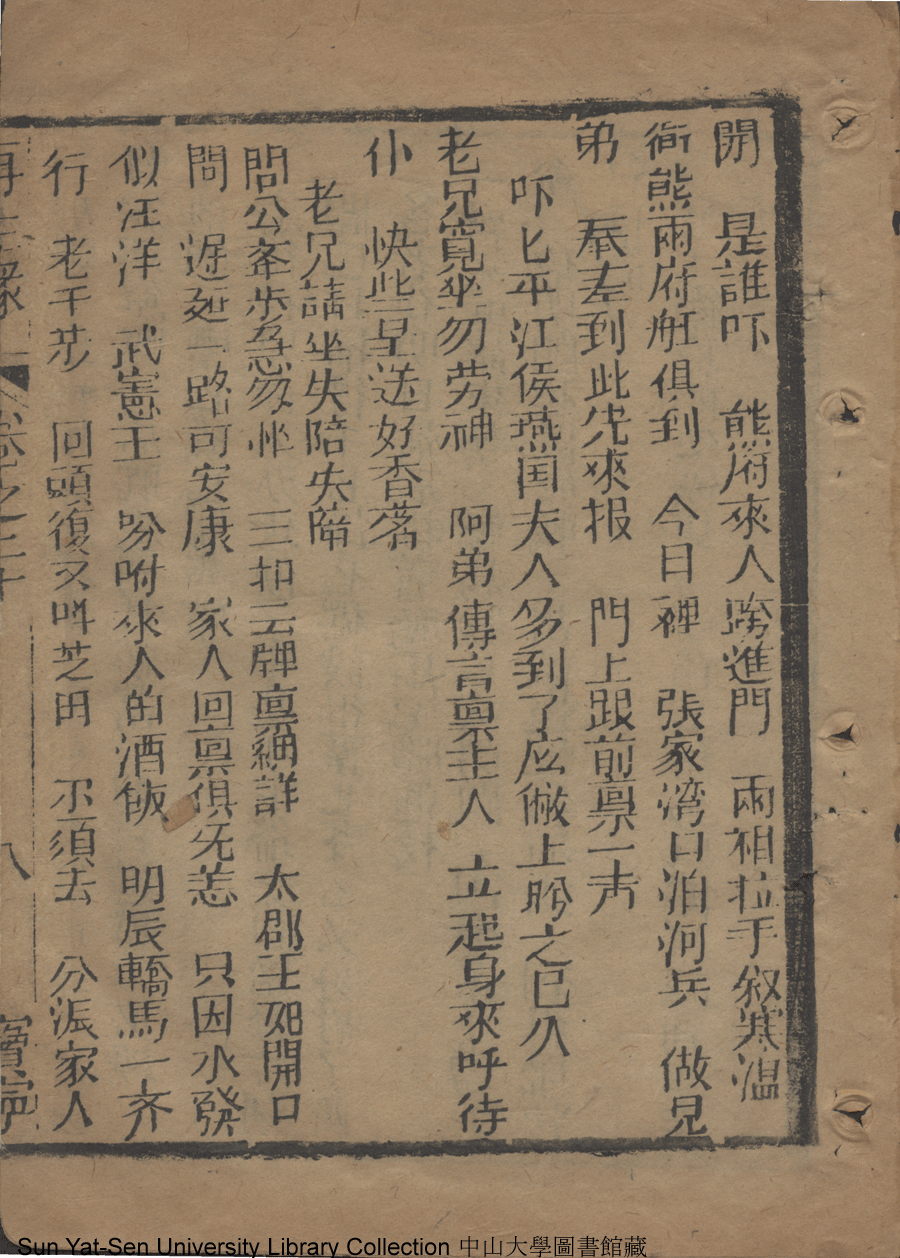 開 是誰吓 熊府來人跨進門 兩相拉手叙寒溫
衙熊兩府舡俱到 今日裡 張家湾口泊河兵 做兄
弟 奉差到此先來报 門上跟前禀一声
吓匕平江侯燕国夫人多到了庅倣上盻之已久
老兄寬坐勿劳神 阿弟傳言禀主人 立起身來呼待
仆 快些呈送好香茗
老兄請坐失陪失陪
問公峯步急匆忙 三扣云牌禀細詳 太郡王妃開口
問 遲延一路可安康 家人回禀俱旡恙 只因水發
似汪洋 武憲王 吩咐來人的酒飯 明辰轎馬一齐
行 老千芿 回頭復又呌芝田 不須去 分派家人
卷之二十
八
寶寧
Sun Yat-Sen University Library Collection 中山大學圖書館藏